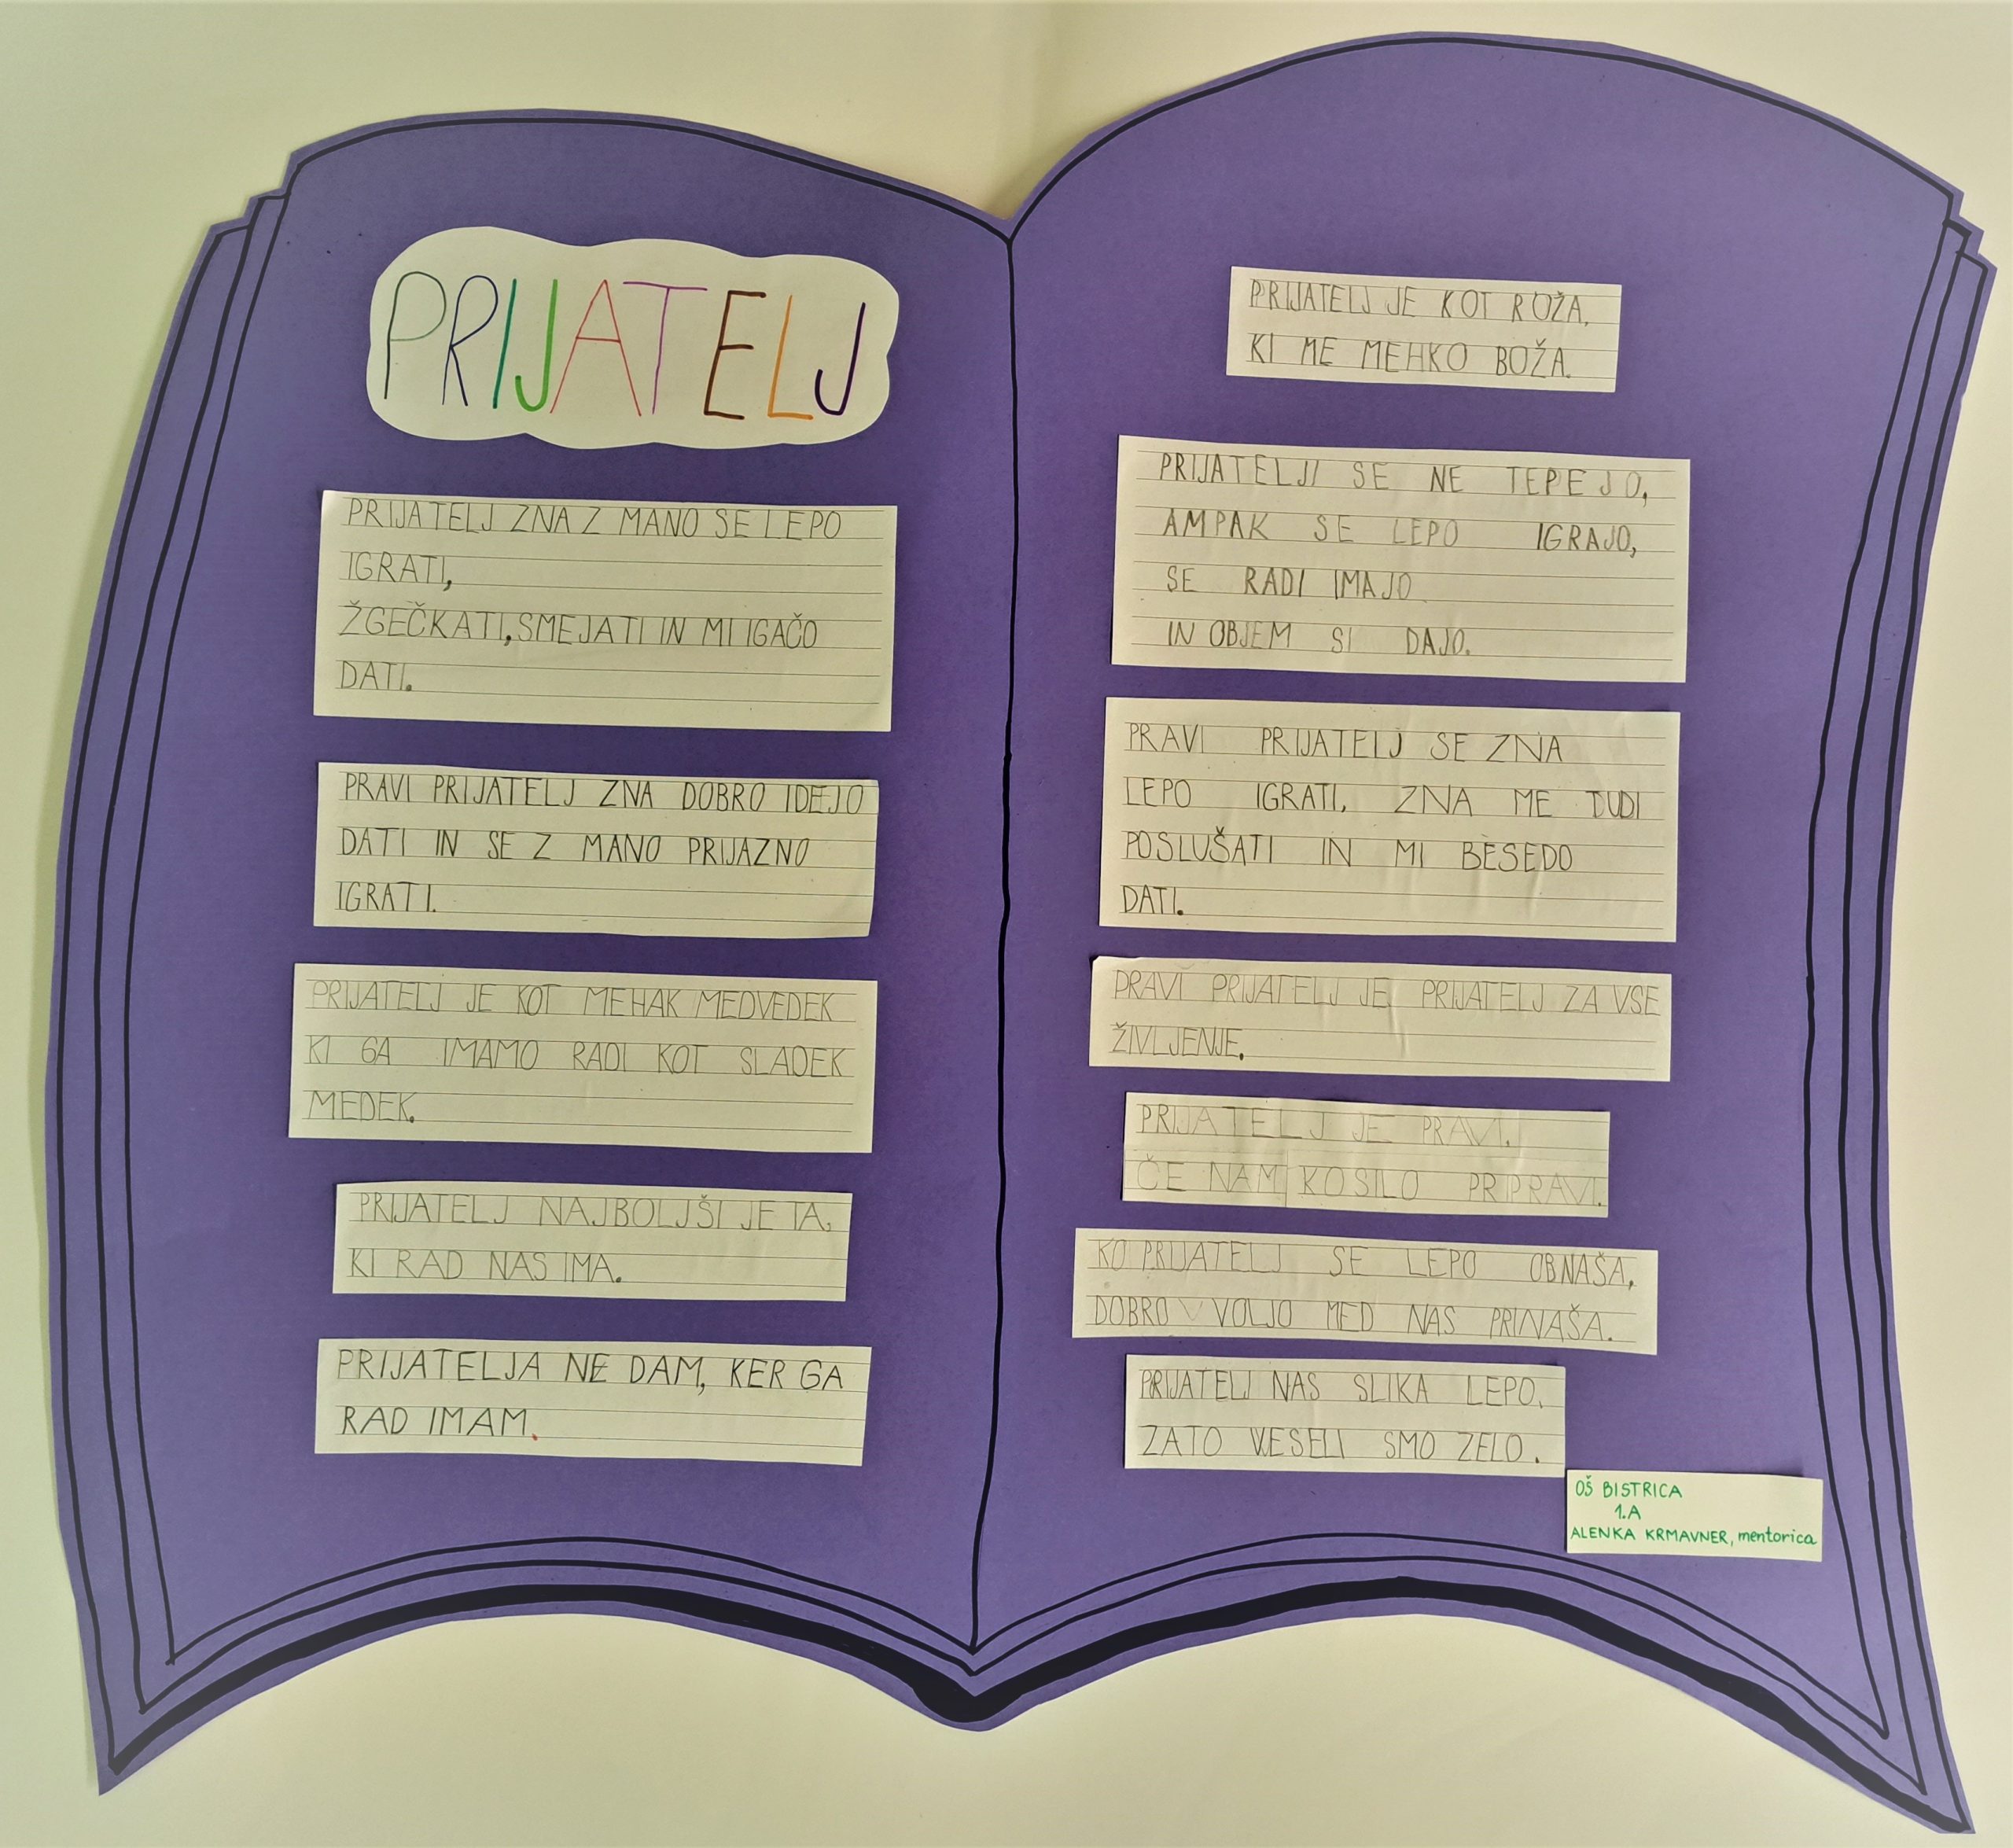 PRIJATELJ
PRIJATELJ ZNA Z MANO SE LEPO
IGRATI,
ŽGEČKATI, SMEJATI IN MI IGAČO
DATI.
PRAVI PRIJATELJ ZNA DOBRO IDEJO
DATI IN SE Z MANO PRIJAZNO
IGRATI.
PRIJATELJ JE KOT MEHAK MEDVEDEK
KI GA IMAMO RADI KOT SLADEK
MEDEK.
PRIJATELJ NAJBOLJŠI JE TA,
KI RAD NAS IMA.
PRIJATELJA NE DAM, KER GA
RAD IMAM.
PRIJATELJ JE KOT ROŽA,
KI ME MEHKO BOŽA.
PRIJATELJI SE NE TEPEJO,
AMPAK SE LEPO IGRAJO,
SE RADI IMAJO
IN OBJEM SI DAJO.
PRAVI PRIJATELJ SE ZNA
LEPO IGRATI, ZNA ME TUDI
POSLUŠATI IN MI BESEDO
DATI.
PRAVI PRIJATELJ JE PRIJATELJ ZA VSE
ŽIVLJENJE.
PRIJATELJ JE PRAVI.
ČE NAM KOSILO PRIPRAVI.
KO PRIJATELJ SE LEPO OBNAŠA,
DOBRO VOLJO MED NAS PRINAŠA.
PRIJATELJ NAS SLIKA LEPO,
ZATO VESELI SMO ZELO.
OŠ BISTRICA
1.A
ALENKA KRMAVNER, mentorica